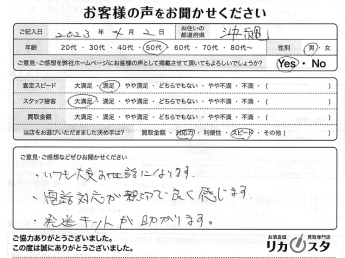 お客様の声をお聞かせください
ご記入日 2023年 4月 2日 お住いの都道府県 沖縄
年齢 20代・30代・40代・50代・60代・70代・80代〜 性別 男・女
ご意見・ご感想を弊社ホームページにお客様の声として掲載させて頂いてもよろしいでしょうか? Yes・No
査定スピード 大満足・満足・やや満足・どちらでもない・やや不満・不満・( )
スタッフ接客 大満足・満足・やや満足・どちらでもない・やや不満・不満・( )
買取金額 大満足・満足・やや満足・どちらでもない・やや不満・不満・( )
当店をお選びいただきました決め手は? 買取金額・対応力・利便性・スピード・その他( )
ご意見・ご感想などぜひお聞かせください
・いつも大変お世話になります。
・電話対応が親切で良く感じます。
・発送キットが助かります。
ご協力ありがとうございました。
この度は誠にありがとうございました。
お酒高価買取専門店
リカスタ